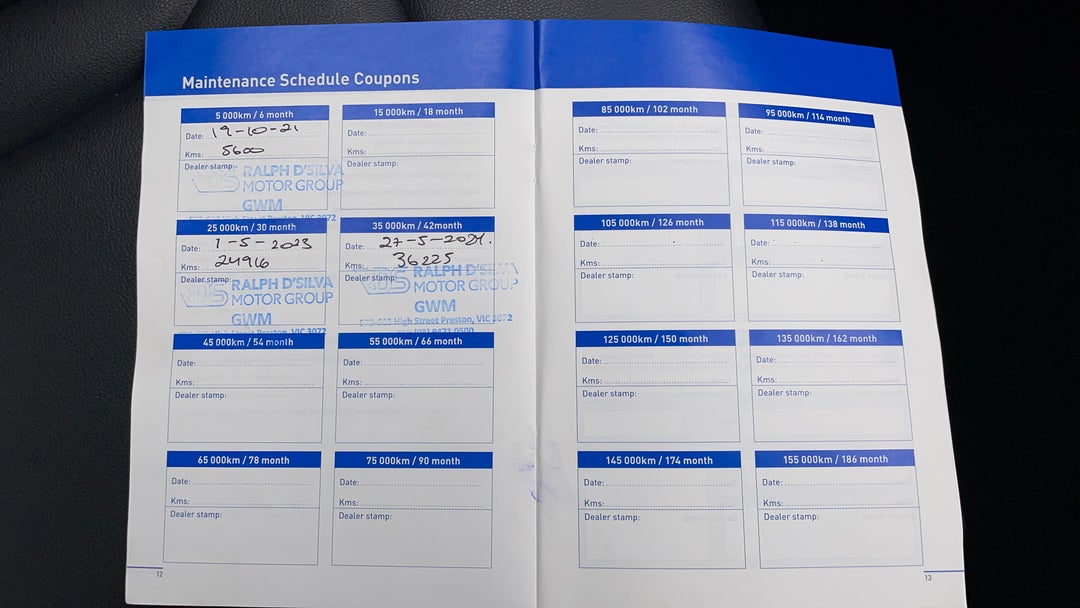 Maintenance Schedule Coupons
5 000km / 6 month
Date: 19-10-21
Kms: 5600
Dealer stamp:
RALPH D'SILVA
MOTOR GROUP
GWM
High Street Preston, VIC 3072
15 000km / 18 month
Date:
Kms:
Dealer stamp:
25 000km / 30 month
Date: 1-5-2023
Kms: 24916
Dealer stamp:
RALPH D'SILVA
MOTOR GROUP
GWM
High Street Preston, VIC 3072
35 000km / 42month
Date: 27-5-2024.
Kms: 36225
Dealer stamp:
RALPH D'SILVA
MOTOR GROUP
GWM
High Street Preston, VIC 3072
9471 0500
45 000km / 54 month
Date:
Kms:
Dealer stamp:
55 000km / 66 month
Date:
Kms:
Dealer stamp:
65 000km / 78 month
Date:
Kms:
Dealer stamp:
75 000km / 90 month
Date:
Kms:
Dealer stamp:
12
85 000km / 102 month
Date:
Kms:
Dealer stamp:
95 000km / 114 month
Date:
Kms:
Dealer stamp:
105 000km / 126 month
Date:
Kms:
Dealer stamp:
115 000km / 138 month
Date:
Kms:
Dealer stamp:
125 000km / 150 month
Date:
Kms:
Dealer stamp:
135 000km / 162 month
Date:
Kms:
Dealer stamp:
145 000km / 174 month
Date:
Kms:
Dealer stamp:
155 000km / 186 month
Date:
Kms:
Dealer stamp:
13